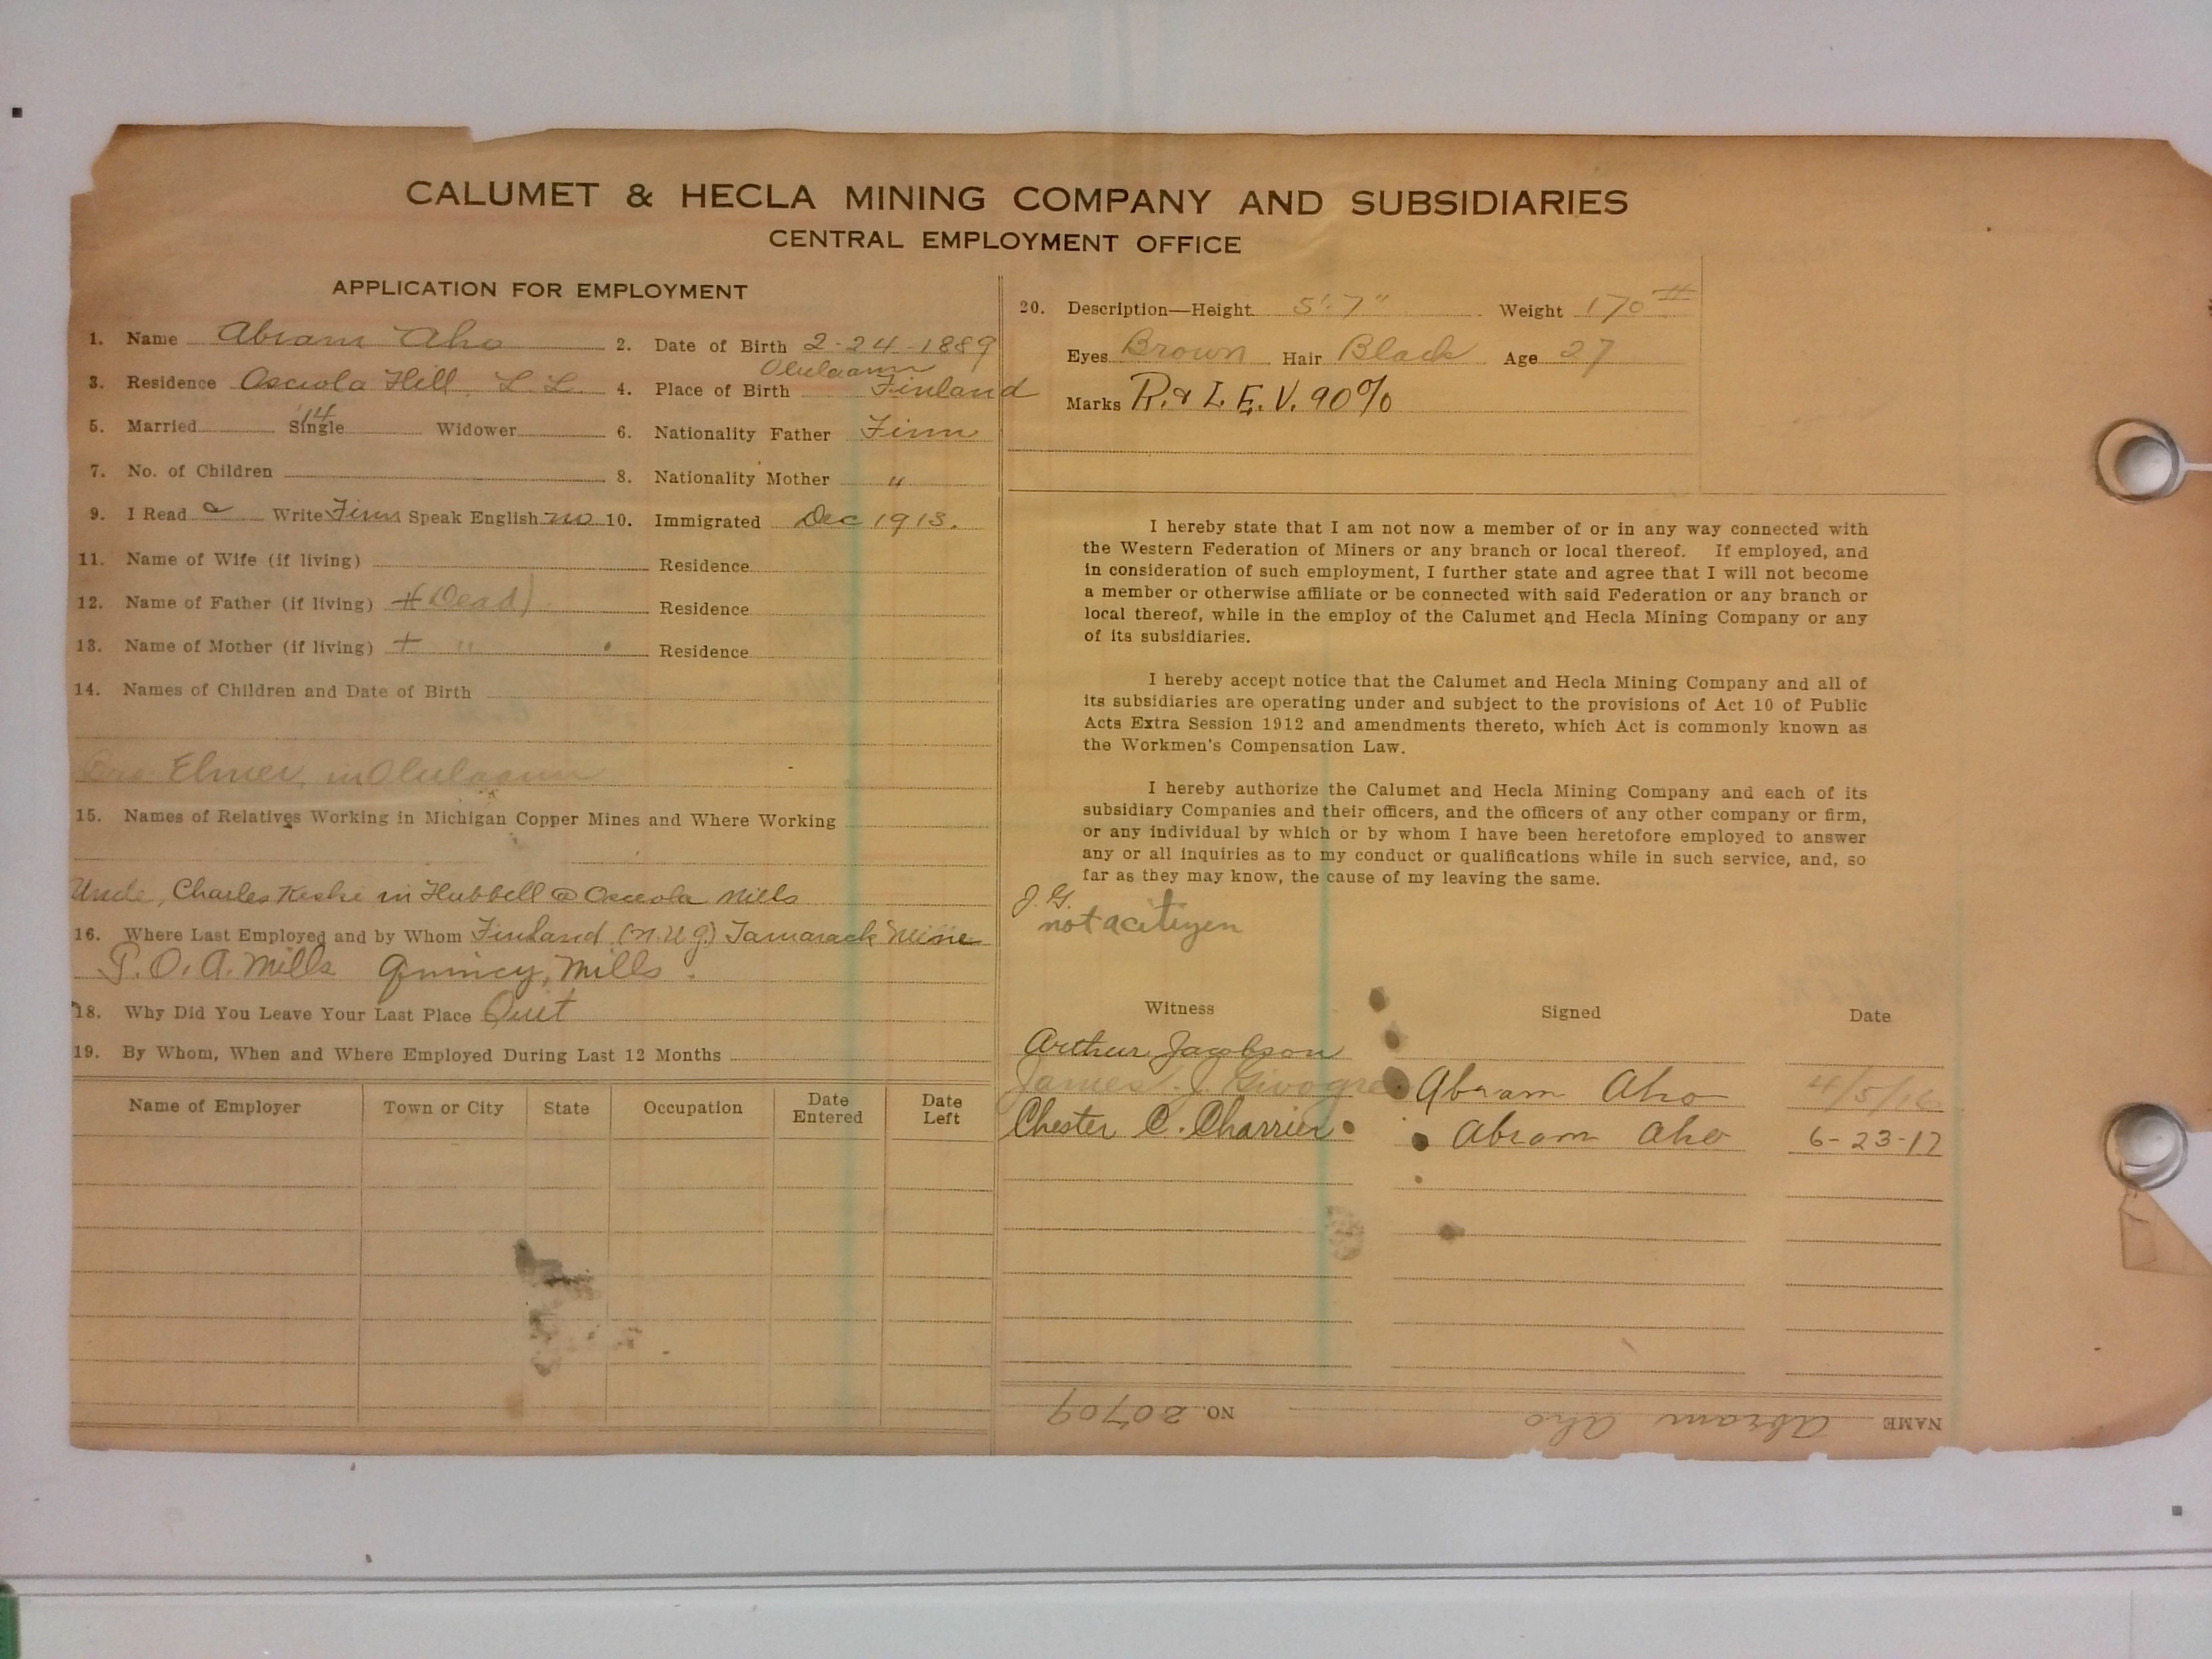 CALUMET & HECLA MINING COMPANY AND SUBSIDIARIES
CENTRAL EMPLOYMENT OFFICE
APPLICATION FOR EMPLOYMENT
1. Name Abram Aho 2. Date of Birth 2-24-1889
3. Residence Osceola Hill L. L. 4. Place of Birth Olulaann Finland
5. Married Single 14 Widower 6. Nationality Father Finn
7. No. of Children 8. Nationality Mother "
9. I Read & Write Finn Speak English no 10. Immigrated Dec 1913.
11. Name of Wife (if living) Residence
12. Name of Father (if living) (Dead) Residence
13. Name of Mother (if living) + " Residence
14. Names of Children and Date of Birth
Bro. Elmer, in Olulaann
15. Names of Relatives Working in Michigan Copper Mines and Where Working
Uncle, Charles Keski in Hubbell @ Osceola Mills
16. Where Last Employed and by Whom Finland (N.U.G.) Tamarack Mine
T. O. A. Mills Quincy, Mills.
18. Why Did You Leave Your Last Place Quit
19. By Whom, When and Where Employed During Last 12 Months
Name of Employer Town or City State Occupation Date Entered Date Left
20. Description—Height 5'.7" Weight 170 #
Eyes Brown Hair Black Age 27
Marks R. & L. E. V. 90%
I hereby state that I am not now a member of or in any way connected with
the Western Federation of Miners or any branch or local thereof. If employed, and
in consideration of such employment, I further state and agree that I will not become
a member or otherwise affiliate or be connected with said Federation or any branch or
local thereof, while in the employ of the Calumet and Hecla Mining Company or any
of its subsidiaries.
I hereby accept notice that the Calumet and Hecla Mining Company and all of
its subsidiaries are operating under and subject to the provisions of Act 10 of Public
Acts Extra Session 1912 and amendments thereto, which Act is commonly known as
the Workmen's Compensation Law.
I hereby authorize the Calumet and Hecla Mining Company and each of its
subsidiary Companies and their officers, and the officers of any other company or firm,
or any individual by which or by whom I have been heretofore employed to answer
any or all inquiries as to my conduct or qualifications while in such service, and, so
far as they may know, the cause of my leaving the same.
J. G.
not a citizen
Witness Signed Date
Arthur Jacobson
James J. Abram Aho 4/5/16
Chester C. Charrier Abram Aho 6-23-17
NAME Abram Aho NO. 20709